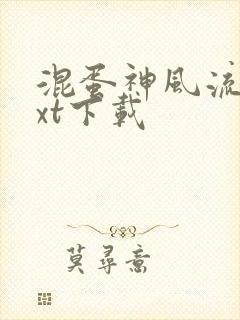 混蛋神風流
xt下載
莫尋意